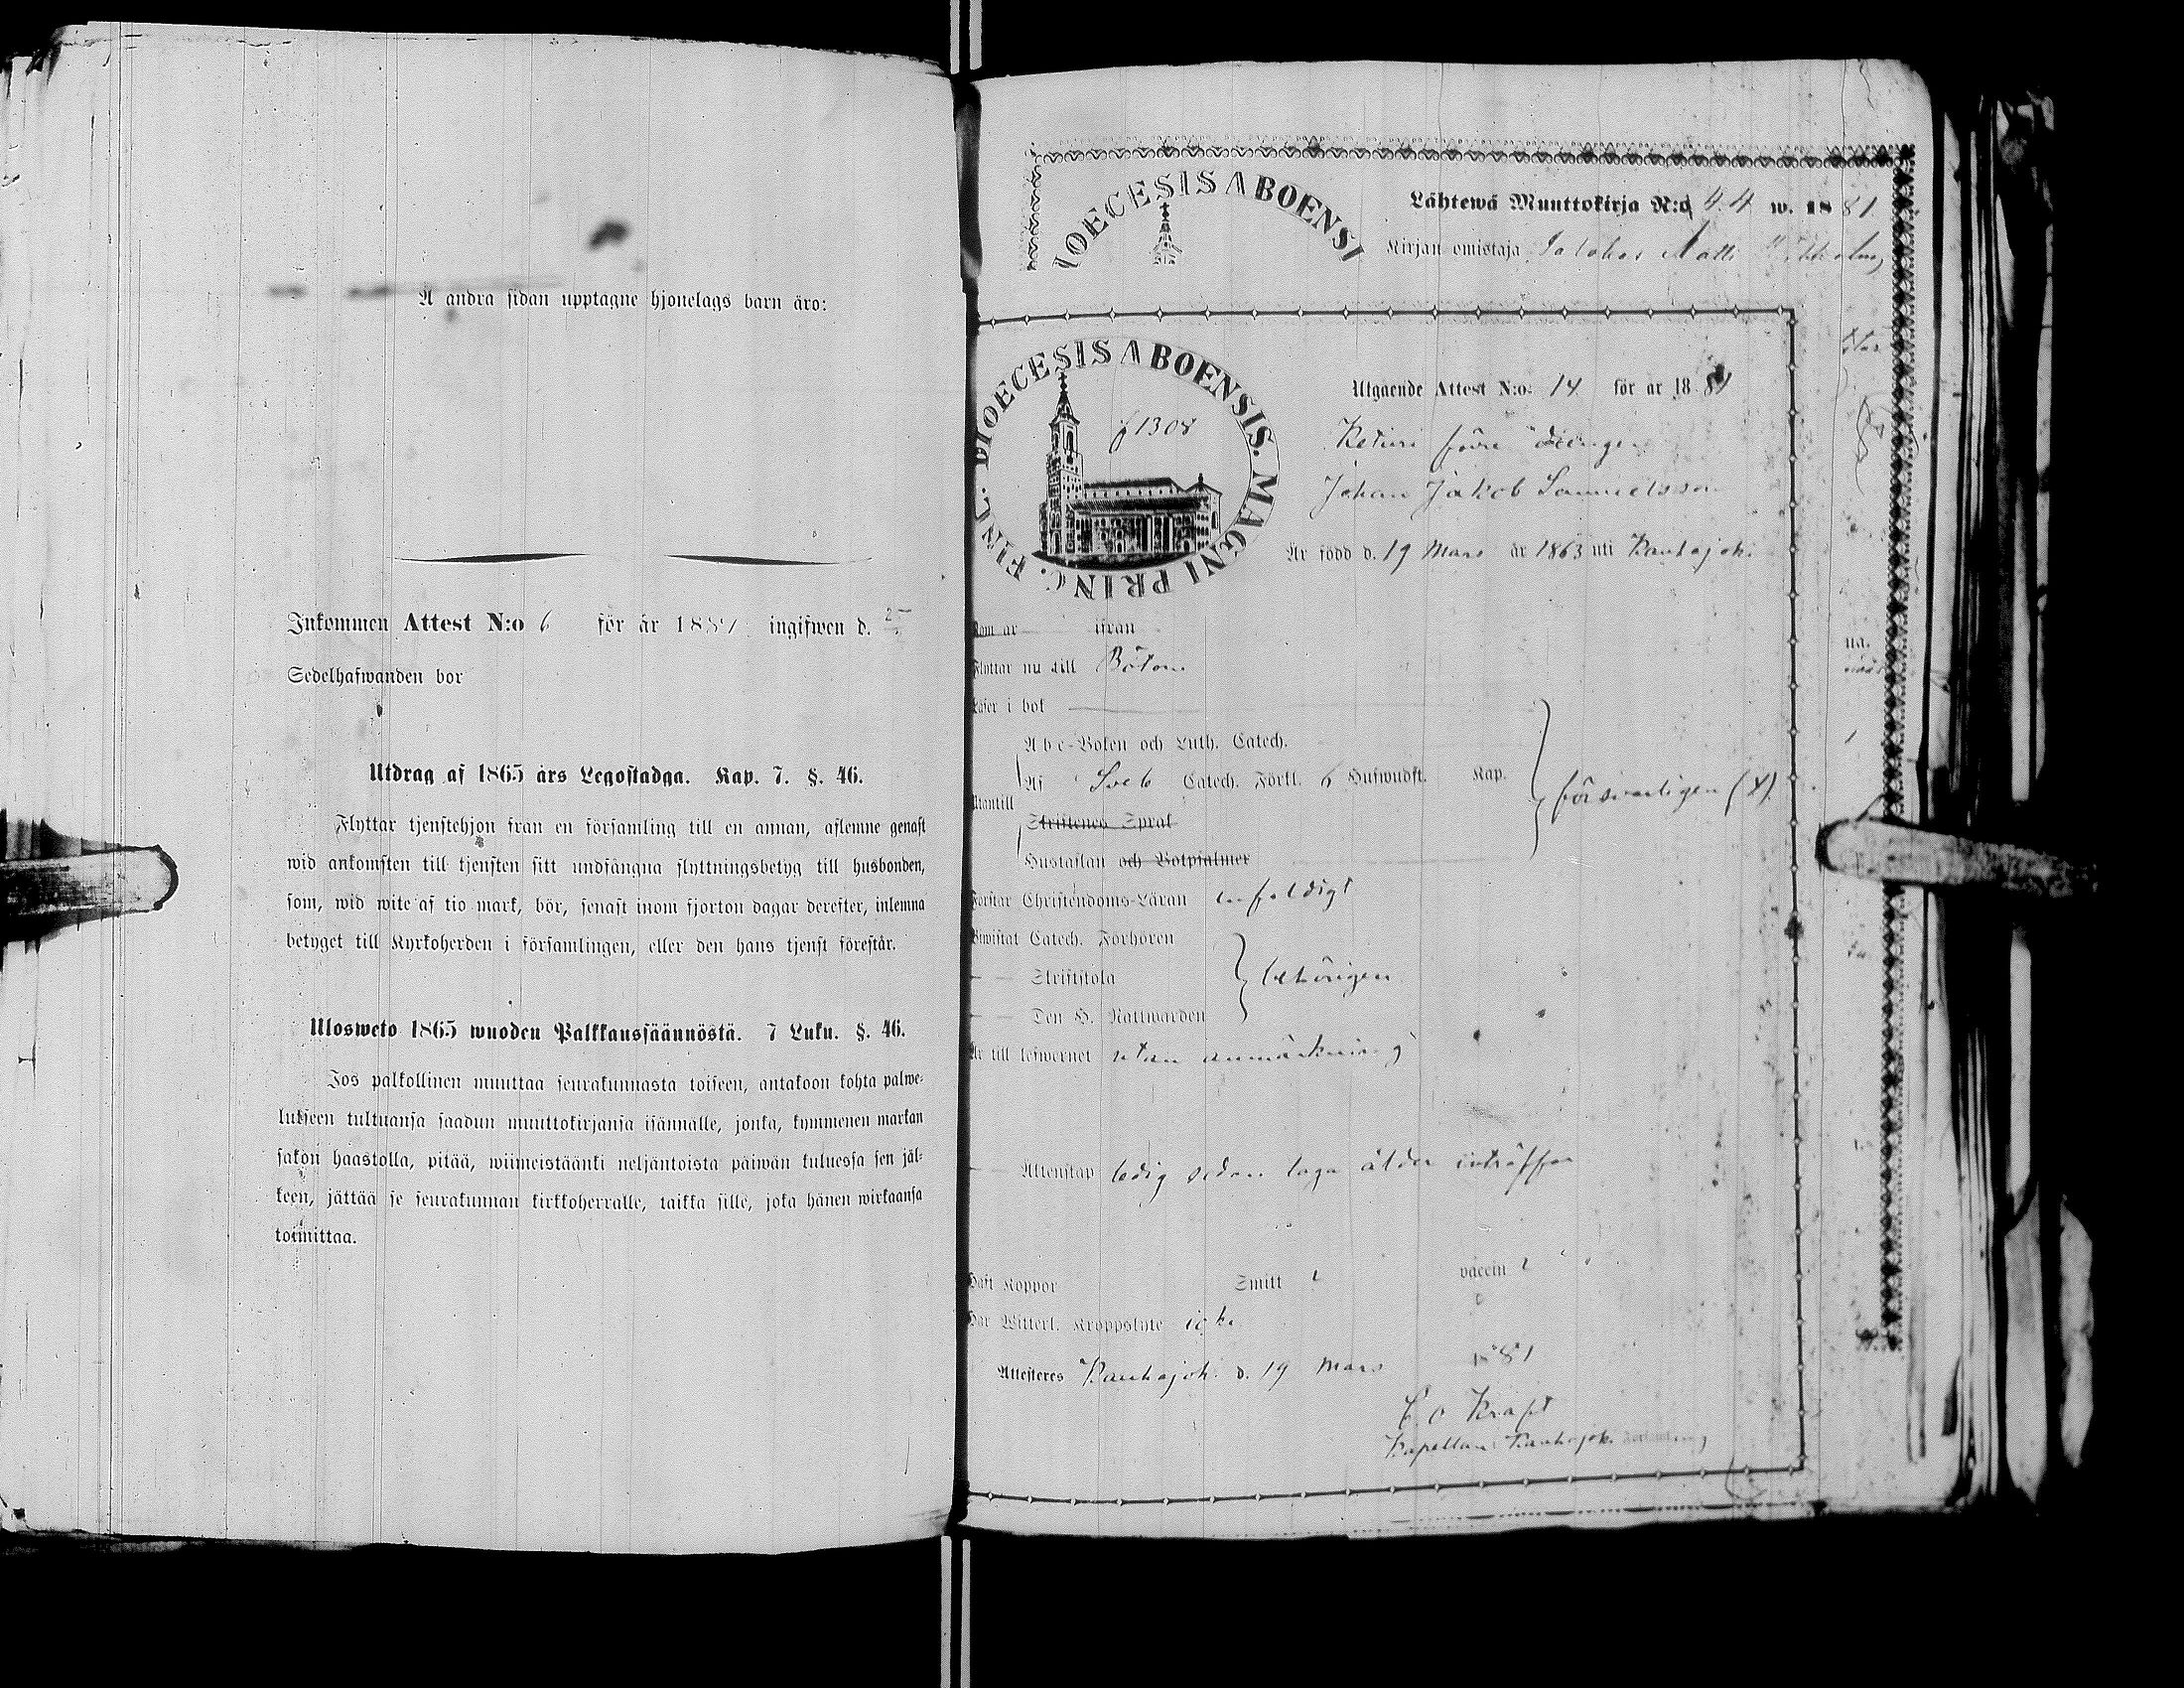 A andra sidan upptagne hjonelags barn äro:
Inkommen Attest N:o 6 för år 1881 ingifwen d.
Sedelhafwanden bor
Utdrag af 1865 års Legostadga. Kap. 7. §. 46.
Flyttar tjenstehjon från en församling till en annan, aflemne genast
wid ankomsten till tjensten sitt undfångna flyttningsbetyg till husbonden,
som, wid wite af tio mark, bör, senast inom fjorton dagar derefter, inlemna
betyget till Kyrkoherden i församlingen, eller den hans tjenst förestår.
Ulosweto 1865 wuoden Palkkaussäännöstä. 7 Luku. §. 46.
Jos palkollinen muuttaa seurakunnasta toiseen, antakoon kohta palwe-
lukseen tultuansa saadun muuttokirjansa isännälle, jonka, kymmenen markan
sakon haastolla, pitää, wiimeistäänki neljäntoista päiwän kuluessa sen jäl-
keen, jättää se seurakunnan kirkkoherralle, taikka sille, joka hänen wirkaansa
toimittaa.
IOECESIS ABOENSI
Lähtewä Muuttokirja N:o 44 w. 1881
Kirjan omistaja Matti
DIOECESIS ABOENSIS. MAGNI PRINC. FINL.
1308
Utgaende Attest N:o 14 för ar 1881
före drengen
Johan Jakob Samuelsson
Är född d. 19 Mars år 1863 uti Kauhajoki
Kom ar ifran
Flyttar nu till Bötom
Läser i bok
Abc-Boken och Luth. Catech.
Utantill
Af Sveb Catech. Förkl. 6 Hufwudst. Kap.
försvarligen (x)
Skriftenes Sprak
Hustaflan och Botpsalmer
Förstår Christendoms-Läran enfaldigt
Biwistat Catech. Förhören
Skriftskola
behörigen
Den H. Nattwarden
Är till lefwernet utan anmärkning
Äktenskap ledig sedan laga ålder inträffar
Haft Koppor Smitt vaccin
Har Witterl. Kroppslyte icke
Attesteres Kauhajoki d. 19 Mars 1881
C O Kraft
Kapellan i Kauhajoki